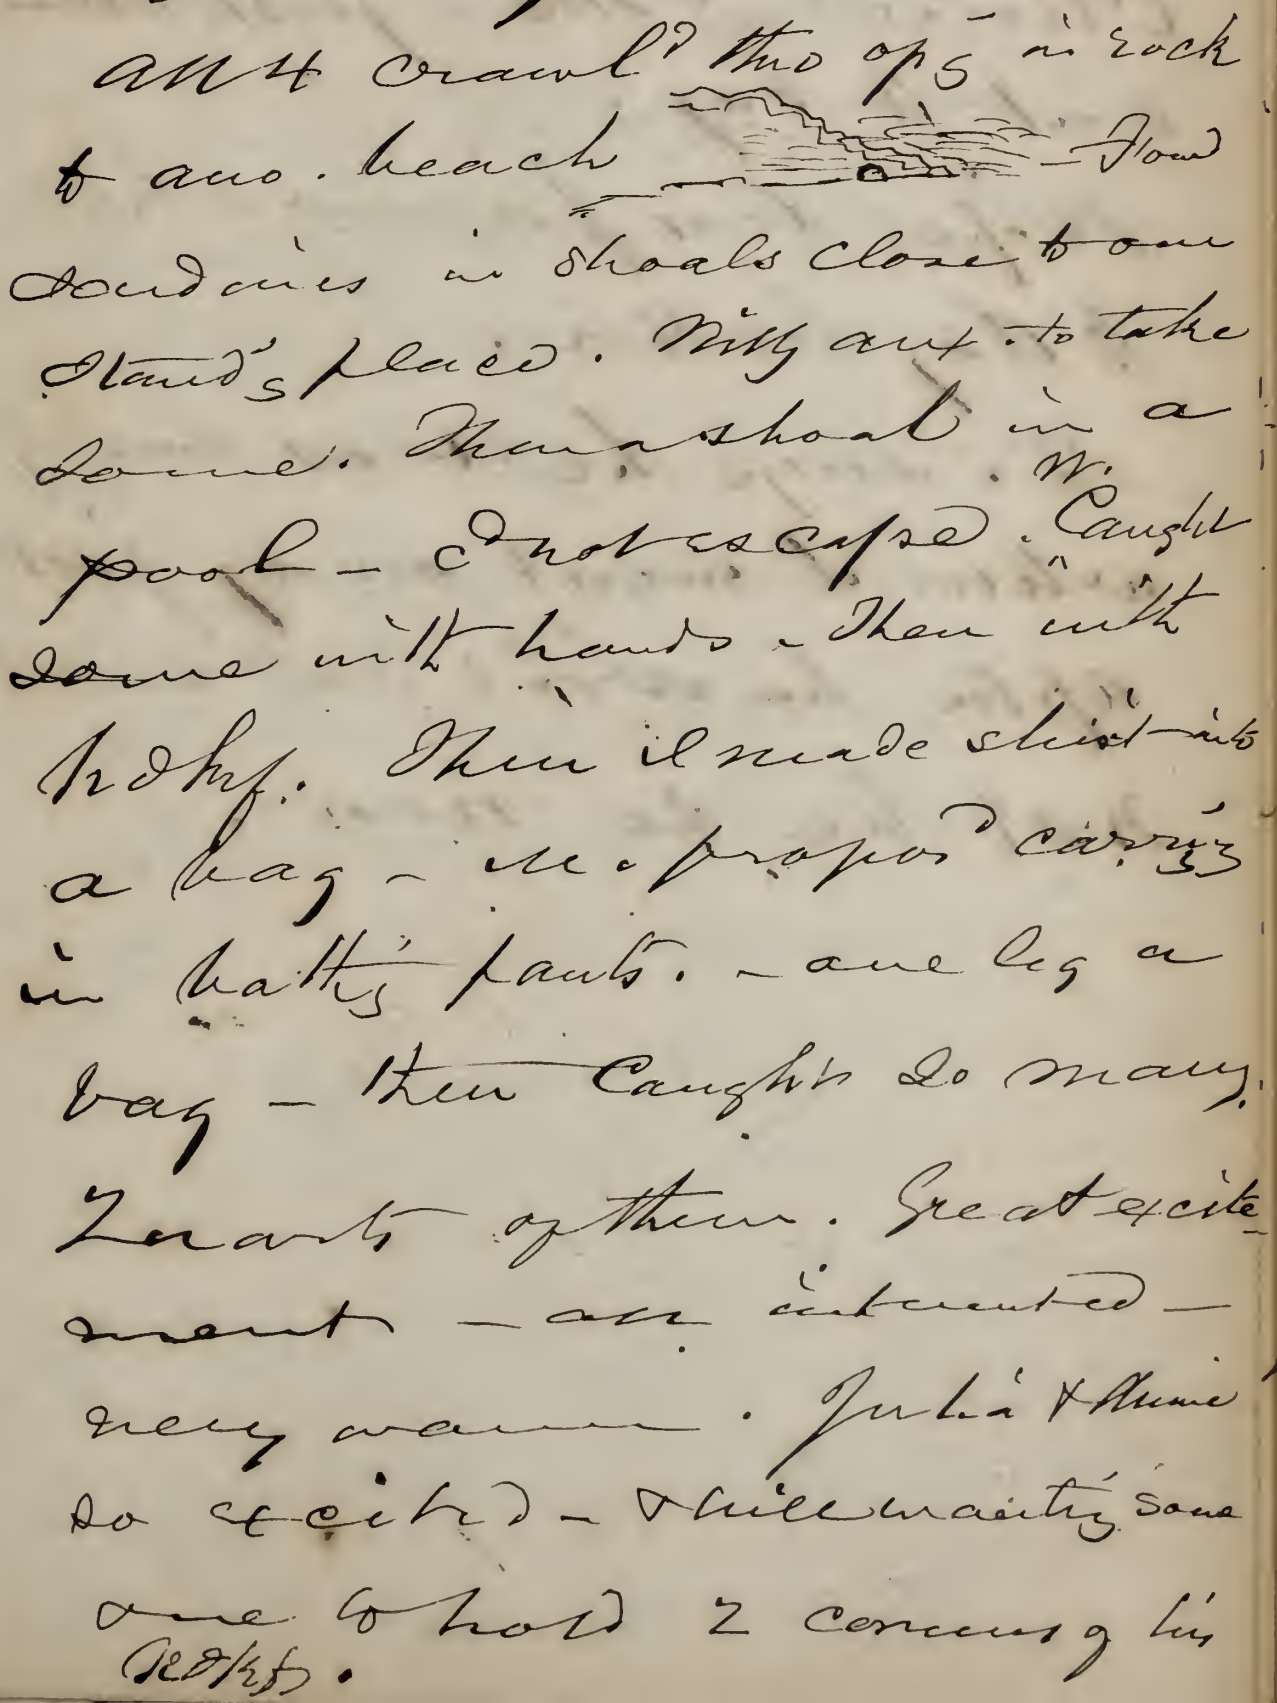 All 4 crawld thro opg in rock
to ano. beach – Found
sardines in shoals close to our
standg place. Willy anx. to take
some. Then a shoal in a
pool – cd not escape. W. Caught
some with hands – Then with
hdkf. Then I made shirt into
a bag – M. proposd carryg
in bathg pants. – one leg a
bag – then caught so many.
2 quarts of them. Great excite-
ment – all interested –
very warm. Julia &
so excited – & Will wantg some
one to hold 2 corners of his
hdkf.